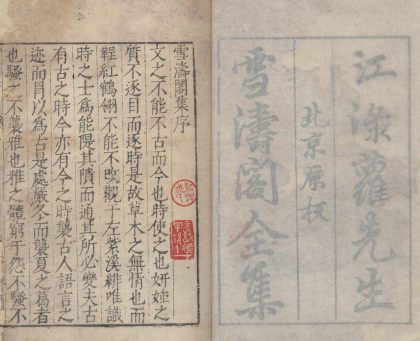 江渌蘿先生
北京原板
雪濤閣全集
雪濤閣集序
文之不能不古而今也時使之也妍媸之
質不逐目而逐時是故草木之無情也而
鞓紅鶴翎不能不改觀于左紫溪緋唯識
時之士為能隄其隤而通其所必變夫古
有古之時今亦有今之時襲古人語言之
迹而冒以為古是處嚴冬而襲夏之葛者
也騷之不襲雅也雅之體窮于怨不騷不